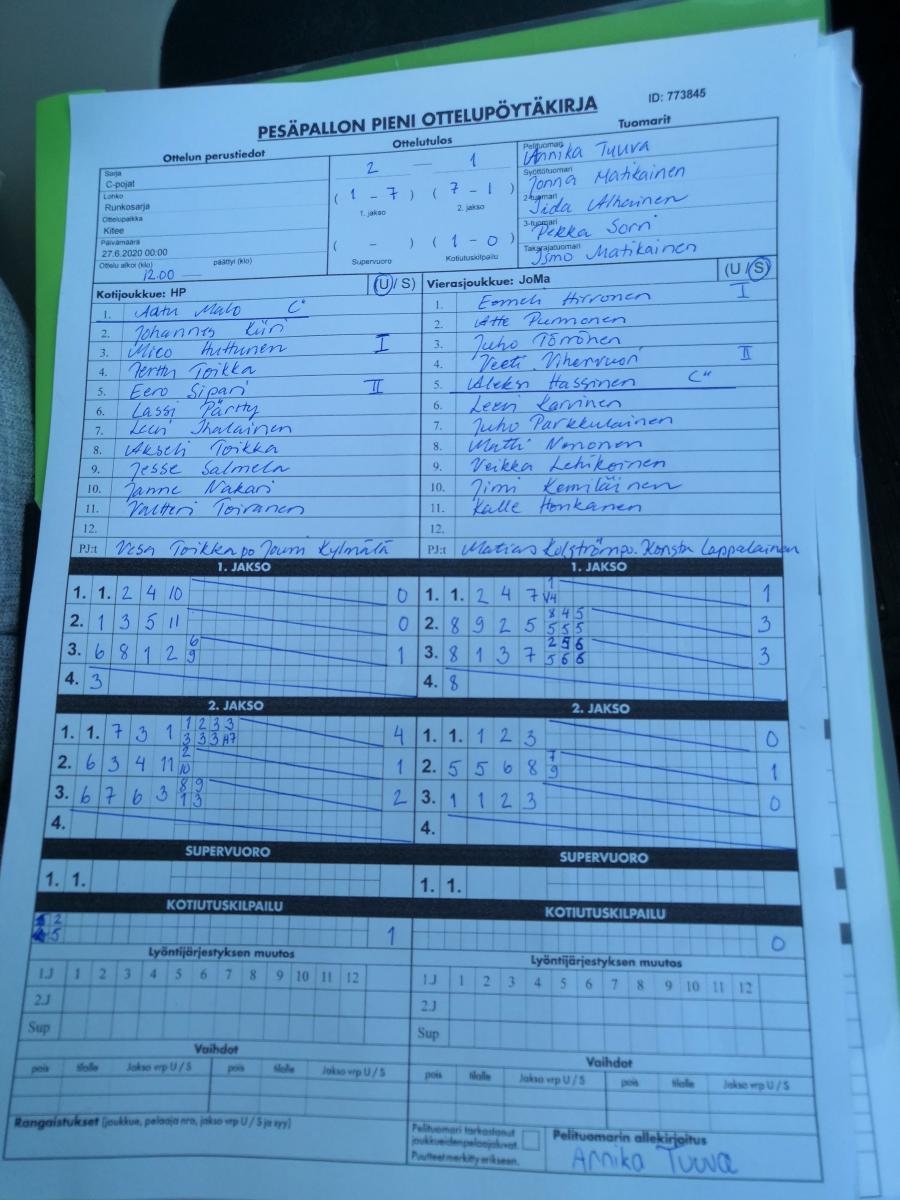 PESÄPALLON PIENI OTTELUPÖYTÄKIRJA
ID: 773845
Ottelun perustiedot
Sarja
C-pojat
Lohko
Runkosarja
Ottelupaikka
Kitee
Päivämäärä
27.6.2020 00:00
Ottelu alkoi (klo) 12.00 päättyi (klo)
Ottelutulos
2 — 1
(1 - 7) (7 - 1)
1. jakso 2. jakso
( - ) (1 - 0)
Supervuoro Kotiutuskilpailu
Tuomarit
Pelituomari
Annika Tuuva
Syöttötuomari
Jonna Matikainen
2-tuomari
Iida Alhainen
3-tuomari
Pekka Sorri
Takarajatuomari
Ismo Matikainen
Kotijoukkue: HP (U / S)
1. Aatu Malo C"
2. Johannes Kiiri
3. Mico Huttunen I
4. Terttu Toikka
5. Eero Sipari II
6. Lassi Pärtty
7. Leevi Ihalainen
8. Akseli Toikka
9. Jesse Salmela
10. Janne Nakari
11. Valtteri Toivanen
12.
PJ:t Vesa Toikka po Jouni Kylmälä
Vierasjoukkue: JoMa (U / S)
1. Eemeli Hirvonen I
2. Atte Purmonen
3. Juho Törrönen
4. Veeti Vihervuori II
5. Aleksi Hassinen C"
6. Leevi Karvinen
7. Juho Parkkulainen
8. Matti Nononen
9. Veikka Lehikoinen
10. Jimi Kemiläinen
11. Kalle Honkanen
12.
PJ:t Matias Kolströmpo. Konsta Lappalainen
1. JAKSO
1. 1. 2 4 10 0
2. 1 3 5 11 0
3. 6 8 1 2 6 9 1
4. 3
1. JAKSO
1. 1. 2 4 7 1 V4 1
2. 8 9 2 5 8 4 5 5 5 5 3
3. 8 1 3 7 2 5 6 5 6 6 3
4. 8
2. JAKSO
1. 1. 7 3 1 1 2 3 3 3 3 3 H7 4
2. 6 3 4 11 2 10 1
3. 6 7 6 3 8 9 1 3 2
4.
2. JAKSO
1. 1. 1 2 3 0
2. 5 5 6 8 7 9 1
3. 1 1 2 3 0
4.
SUPERVUORO
1. 1.
SUPERVUORO
1. 1.
KOTIUTUSKILPAILU
2
5 1
KOTIUTUSKILPAILU
0
Lyöntijärjestyksen muutos
1.J 1 2 3 4 5 6 7 8 9 10 11 12
2.J
Sup
Lyöntijärjestyksen muutos
1.J 1 2 3 4 5 6 7 8 9 10 11 12
2.J
Sup
Vaihdot
pois tilalle Jakso vrp U / S pois tilalle Jakso vrp U / S
Vaihdot
pois tilalle Jakso vrp U / S pois tilalle Jakso vrp U / S
Rangaistukset (joukkue, pelaaja nro, jakso vrp U / S ja syy)
Pelituomari tarkastanut
joukkueiden pelaajaluvat.
Puutteet merkitty erikseen.
Pelituomarin allekirjoitus
Annika Tuuva